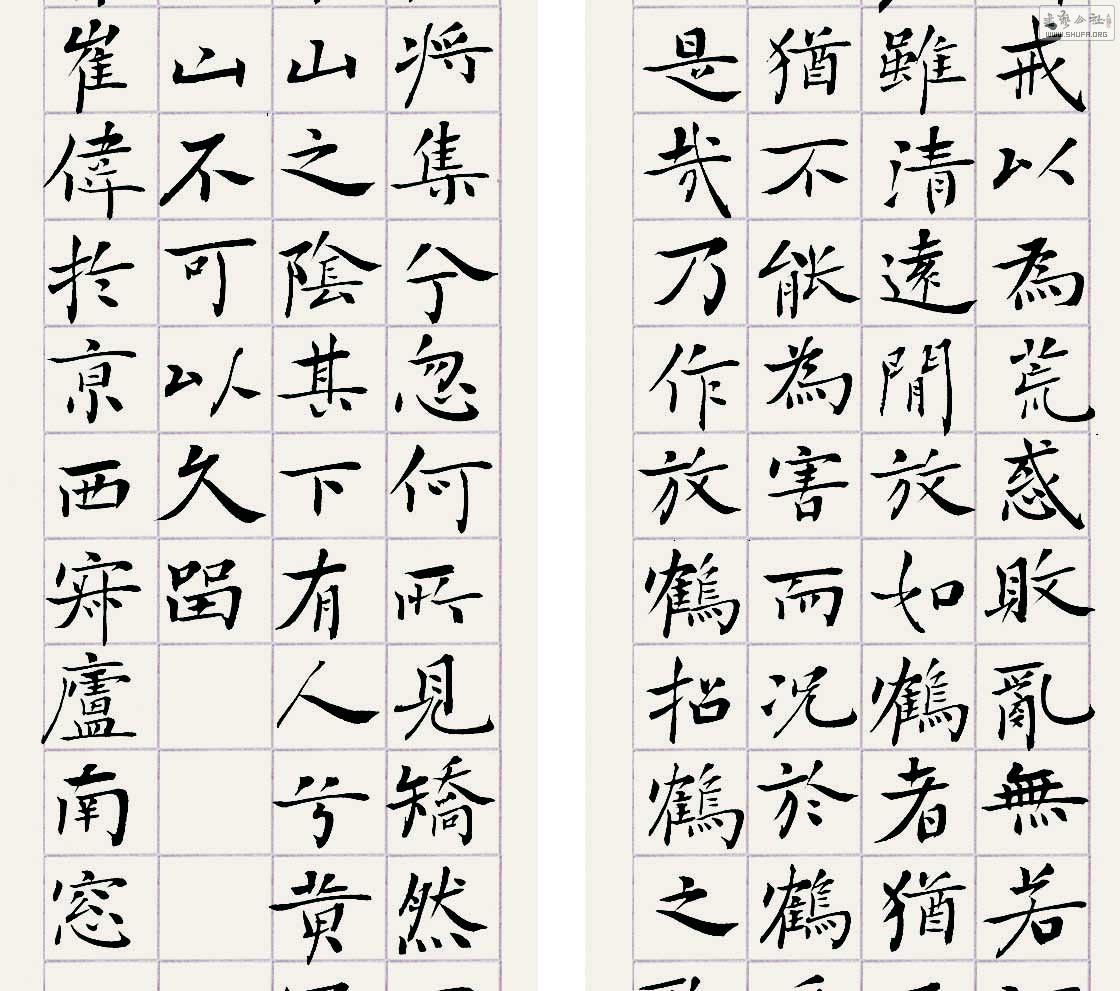 戒以為荒惑敗亂無若
雖清遠閒放如鶴者猶
猶不能為害而況於鶴
是哉乃作放鶴招鶴之
将集兮忽何所見矯然
山之陰其下有人兮黄
山不可以久畱
崔偉扵亰西寂廬南窓
书艺公社
WWW.SHUFA.ORG